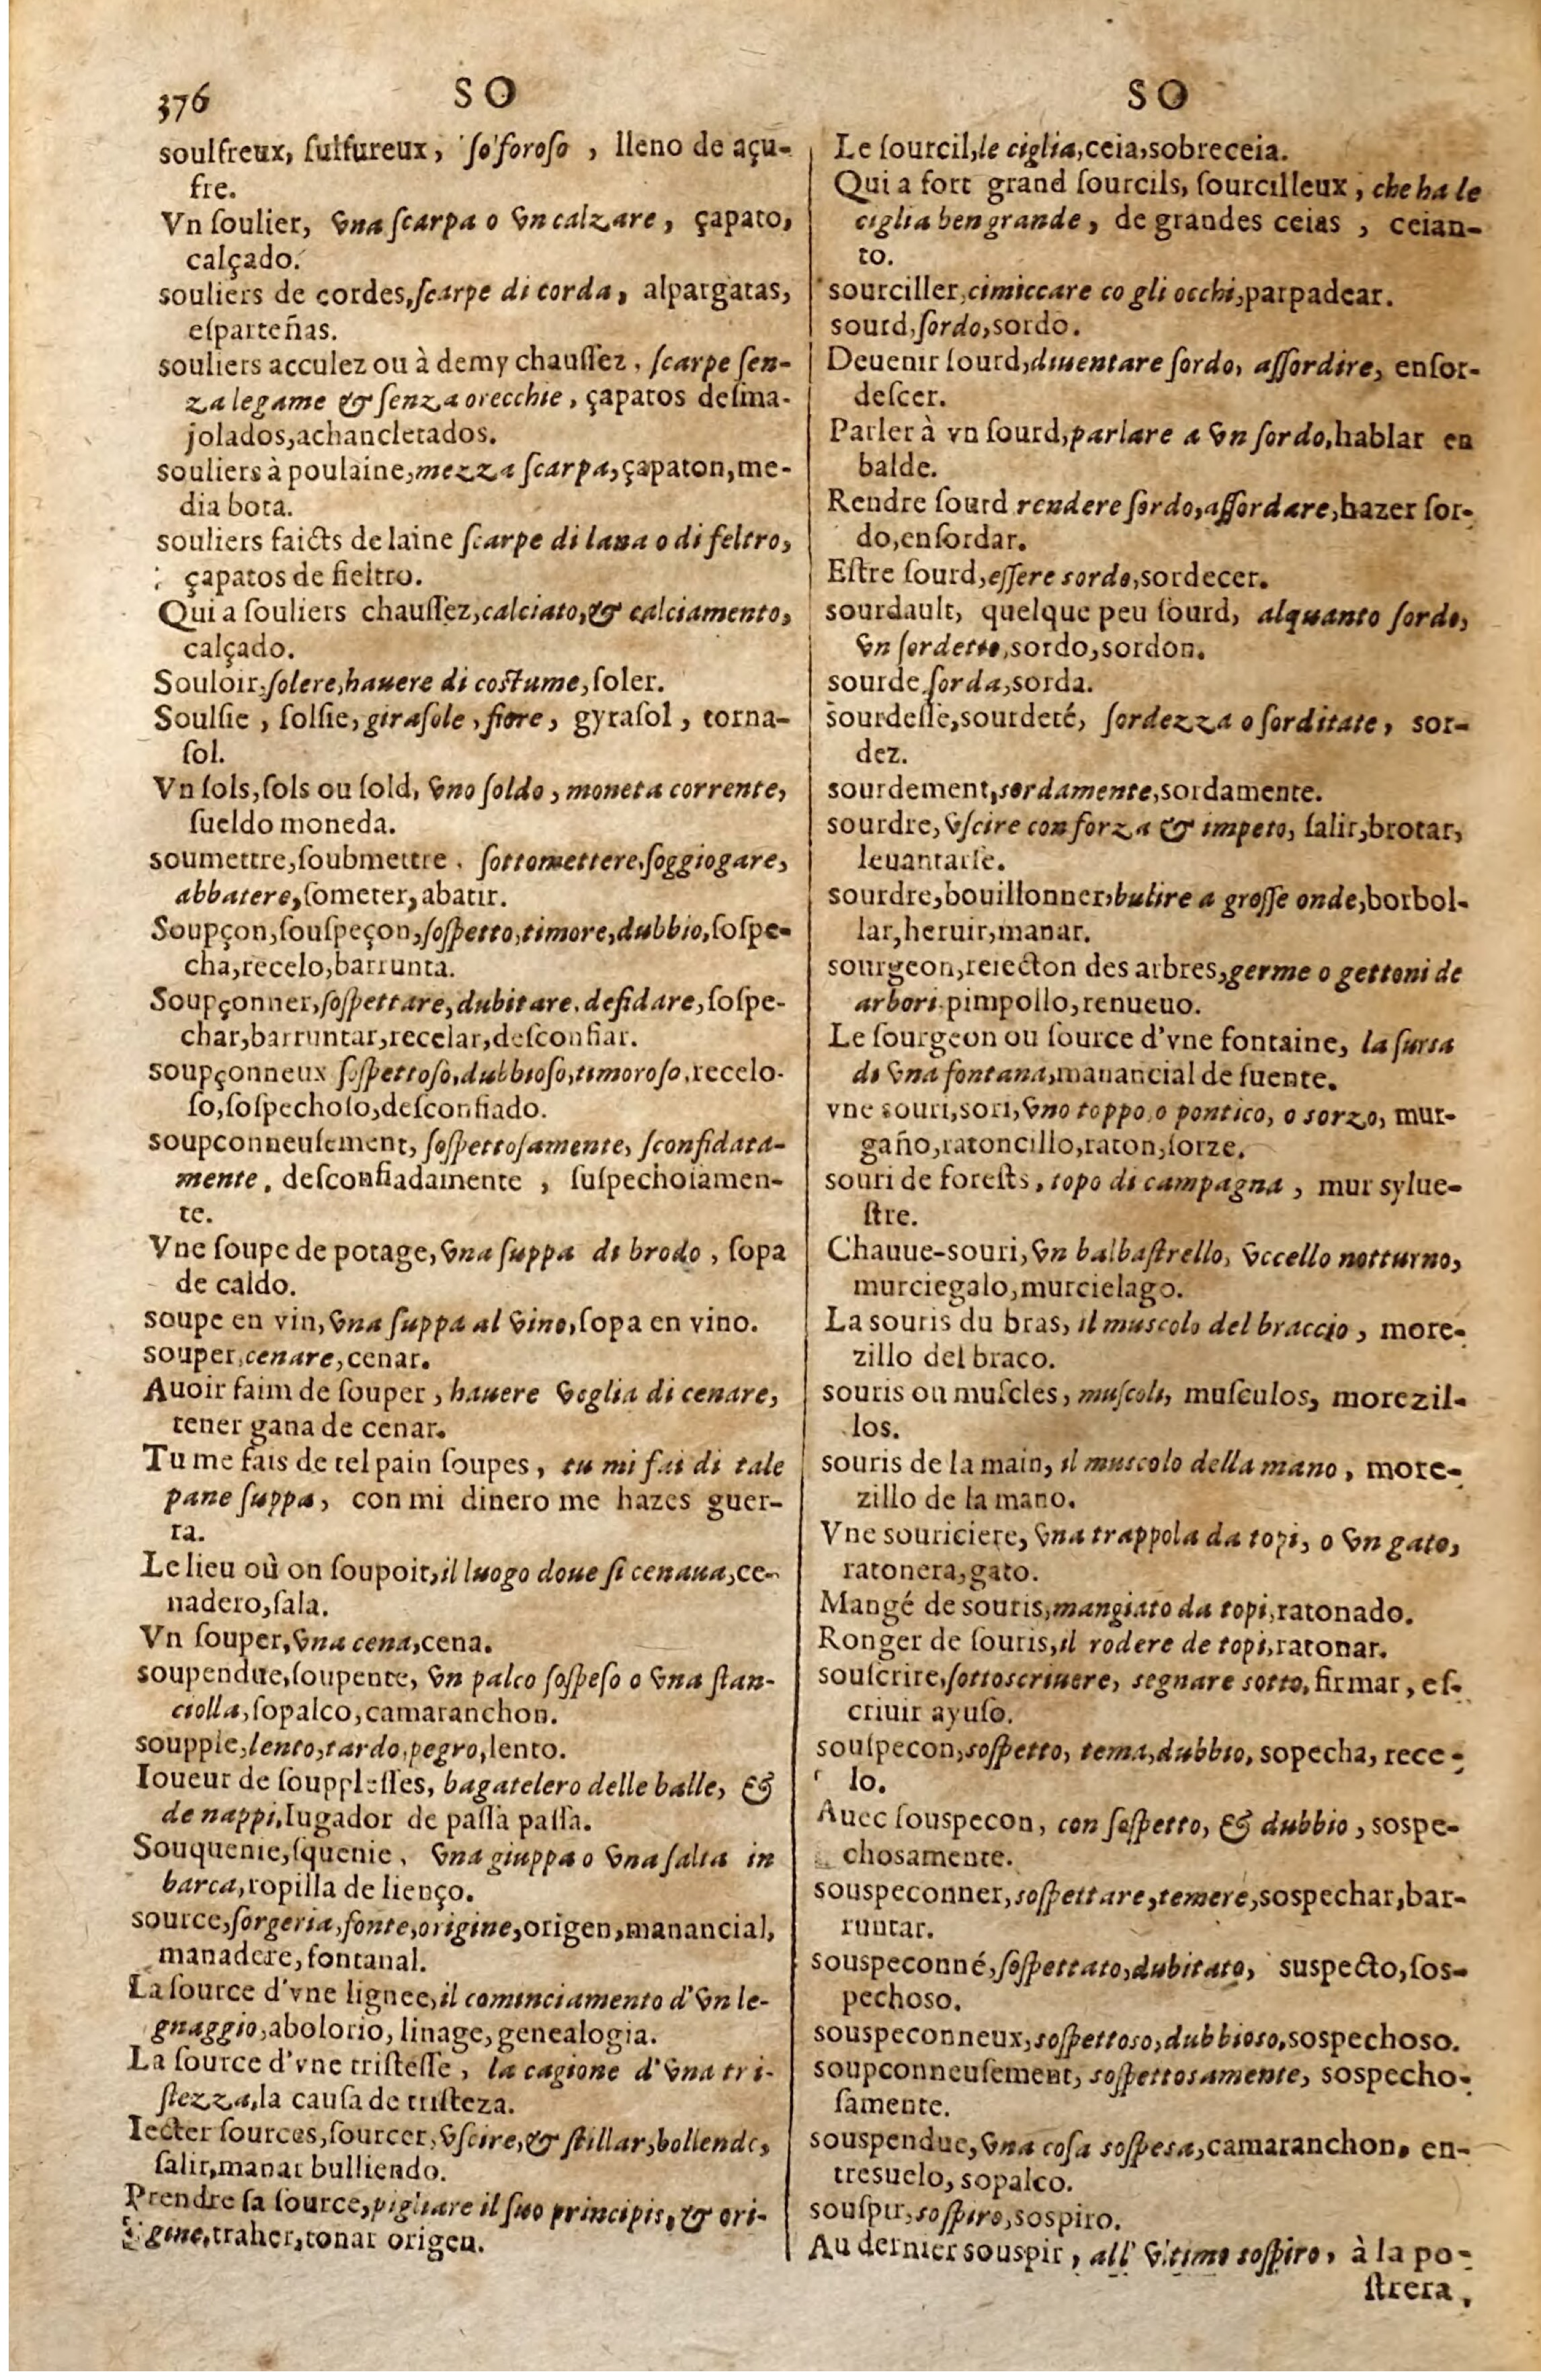 376
SO
SO
soulfreux, sulfureux, so'foroso, lleno de açu-
fre.
Vn soulier, vna scarpa o vn calzare, çapato,
calçado.
souliers de cordes, scarpe di corda, alpargatas,
esparteñas.
souliers acculez ou à demy chaussez, scarpe sen-
za legame & senza orecchie, çapatos desma-
jolados, achancletados.
souliers à poulaine, mezza scarpa, çapaton, me-
dia bota.
souliers faicts de laine scarpe di lana o di feltro,
çapatos de fieltro.
Qui a souliers chaussez, calciato, & calciamento,
calçado.
Souloir, solere, hauere di costume, soler.
Soulsie, solsie, girasole, fiore, gyrasol, torna-
sol.
Vn sols, sols ou sold, vno soldo, moneta corrente,
sueldo moneda.
soumettre, soubmettre, sottomettere, soggiogare,
abbatere, someter, abatir.
Soupçon, souspeçon, sospetto, timore, dubbio, sospe-
cha, recelo, barrunta.
Soupçonner, sospettare, dubitare, desidare, sospe-
char, barruntar, recelar, desconfiar.
soupçonneux sospettoso, dubbioso, timoroso, recelo-
so, sospechoso, desconfiado.
soupconneusement, sospettosamente, sconfidata-
mente, desconfiadamente, suspechosamen-
te.
Vne soupe de potage, vna suppa di brodo, sopa
de caldo.
soupe en vin, vna suppa al vino, sopa en vino.
souper, cenare, cenar.
Auoir faim de souper, hauere voglia di cenare,
tener gana de cenar.
Tu me fais de tel pain soupes, tu mi fai di tale
pane suppa, con mi dinero me hazes guer-
ra.
Le lieu où on soupoit, il luogo doue si cenaua, ce-
nadero, sala.
Vn souper, vna cena, cena.
soupendue, soupente, vn palco sospeso o vna stan-
ciolla, sopalco, camaranchon.
soupple, lento, tardo, pegro, lento.
Ioueur de souplesses, bagatelero delle balle, &
de nappi, Iugador de passa passa.
Souquenie, squenie, vna giuppa o vna salta in
barca, ropilla de lienço.
source, sorgeria, fonte, origine, origen, manancial,
manadere, fontanal.
La source d'vne lignee, il cominciamento d'vn le-
gnaggio, abolorio, linage, genealogia.
La source d'vne tristesse, la cagione d'vna tri-
stezza, la causa de tristeza.
Iecter sources, sourcer, vscire, & stillar, bollende,
salir, manar bulliendo.
Prendre sa source, pigliare il suo principis, & ori-
gine, traher, tonar origen.
Le sourcil, le ciglia, ceia, sobreceia.
Qui a fort grand sourcils, sourcilleux, che ha le
ciglia ben grande, de grandes ceias, ceian-
to.
sourciller, cimiccare co gli occhi, parpadear.
sourd, sordo, sordo.
Deuenir sourd, diuentare sordo, assordire, ensor-
descer.
Parler à vn sourd, parlare a vn sordo, hablar en
balde.
Rendre sourd rendere sordo, assordare, hazer sor-
do, ensordar.
Estre sourd, essere sordo, sordecer.
sourdault, quelque peu sourd, alquanto sordo,
vn sordetto, sordo, sordon.
sourde, sorda, sorda.
sourdesse, sourdeté, sordezza o sorditate, sor-
dez.
sourdement, sordamente, sordamente.
sourdre, vscire con forza & impeto, salir, brotar,
leuantarse.
sourdre, bouillonner, bulire a grosse onde, borbol-
lar, heruir, manar.
sourgeon, reiecton des arbres, germe o gettoni de
arbori, pimpollo, renueuo.
Le sourgeon ou source d'vne fontaine, la sursa
di vna fontana, manancial de fuente.
vne souri, sori, vno toppo, o pontico, o sorzo, mur-
gaño, ratoncillo, raton, sorze.
souri de forests, topo di campagna, mur sylue-
stre.
Chauue-souri, vn balbastrello, vccello notturno,
murciegalo, murcielago.
La souris du bras, il muscolo del braccio, more-
zillo del braco.
souris ou muscles, muscoli, musculos, morezil-
los.
souris de la main, il muscolo della mano, more-
zillo de la mano.
Vne souriciere, vna trappola da topi, o vn gato,
ratonera, gato.
Mangé de souris, mangiato da topi, ratonado.
Ronger de souris, il rodere de topi, ratonar.
souscrire, sottoscriuere, segnare sotto, firmar, es-
criuir ayuso.
souspecon, sospetto, tema, dubbio, sopecha, rece-
lo.
Auec souspecon, con sospetto, & dubbio, sospe-
chosamente.
souspeconner, sospettare, temere, sospechar, bar-
runtar.
souspeconné, sospettato, dubitato, suspecto, sos-
pechoso.
souspeconneux, sospettoso, dubbioso, sospechoso.
soupconneusement, sospettosamente, sospecho-
samente.
souspendue, vna cosa sospesa, camaranchon, en-
tresuelo, sopalco.
souspir, sospiro, sospiro.
Au dernier souspir, all' vltimo sospiro, à la po-
strera,